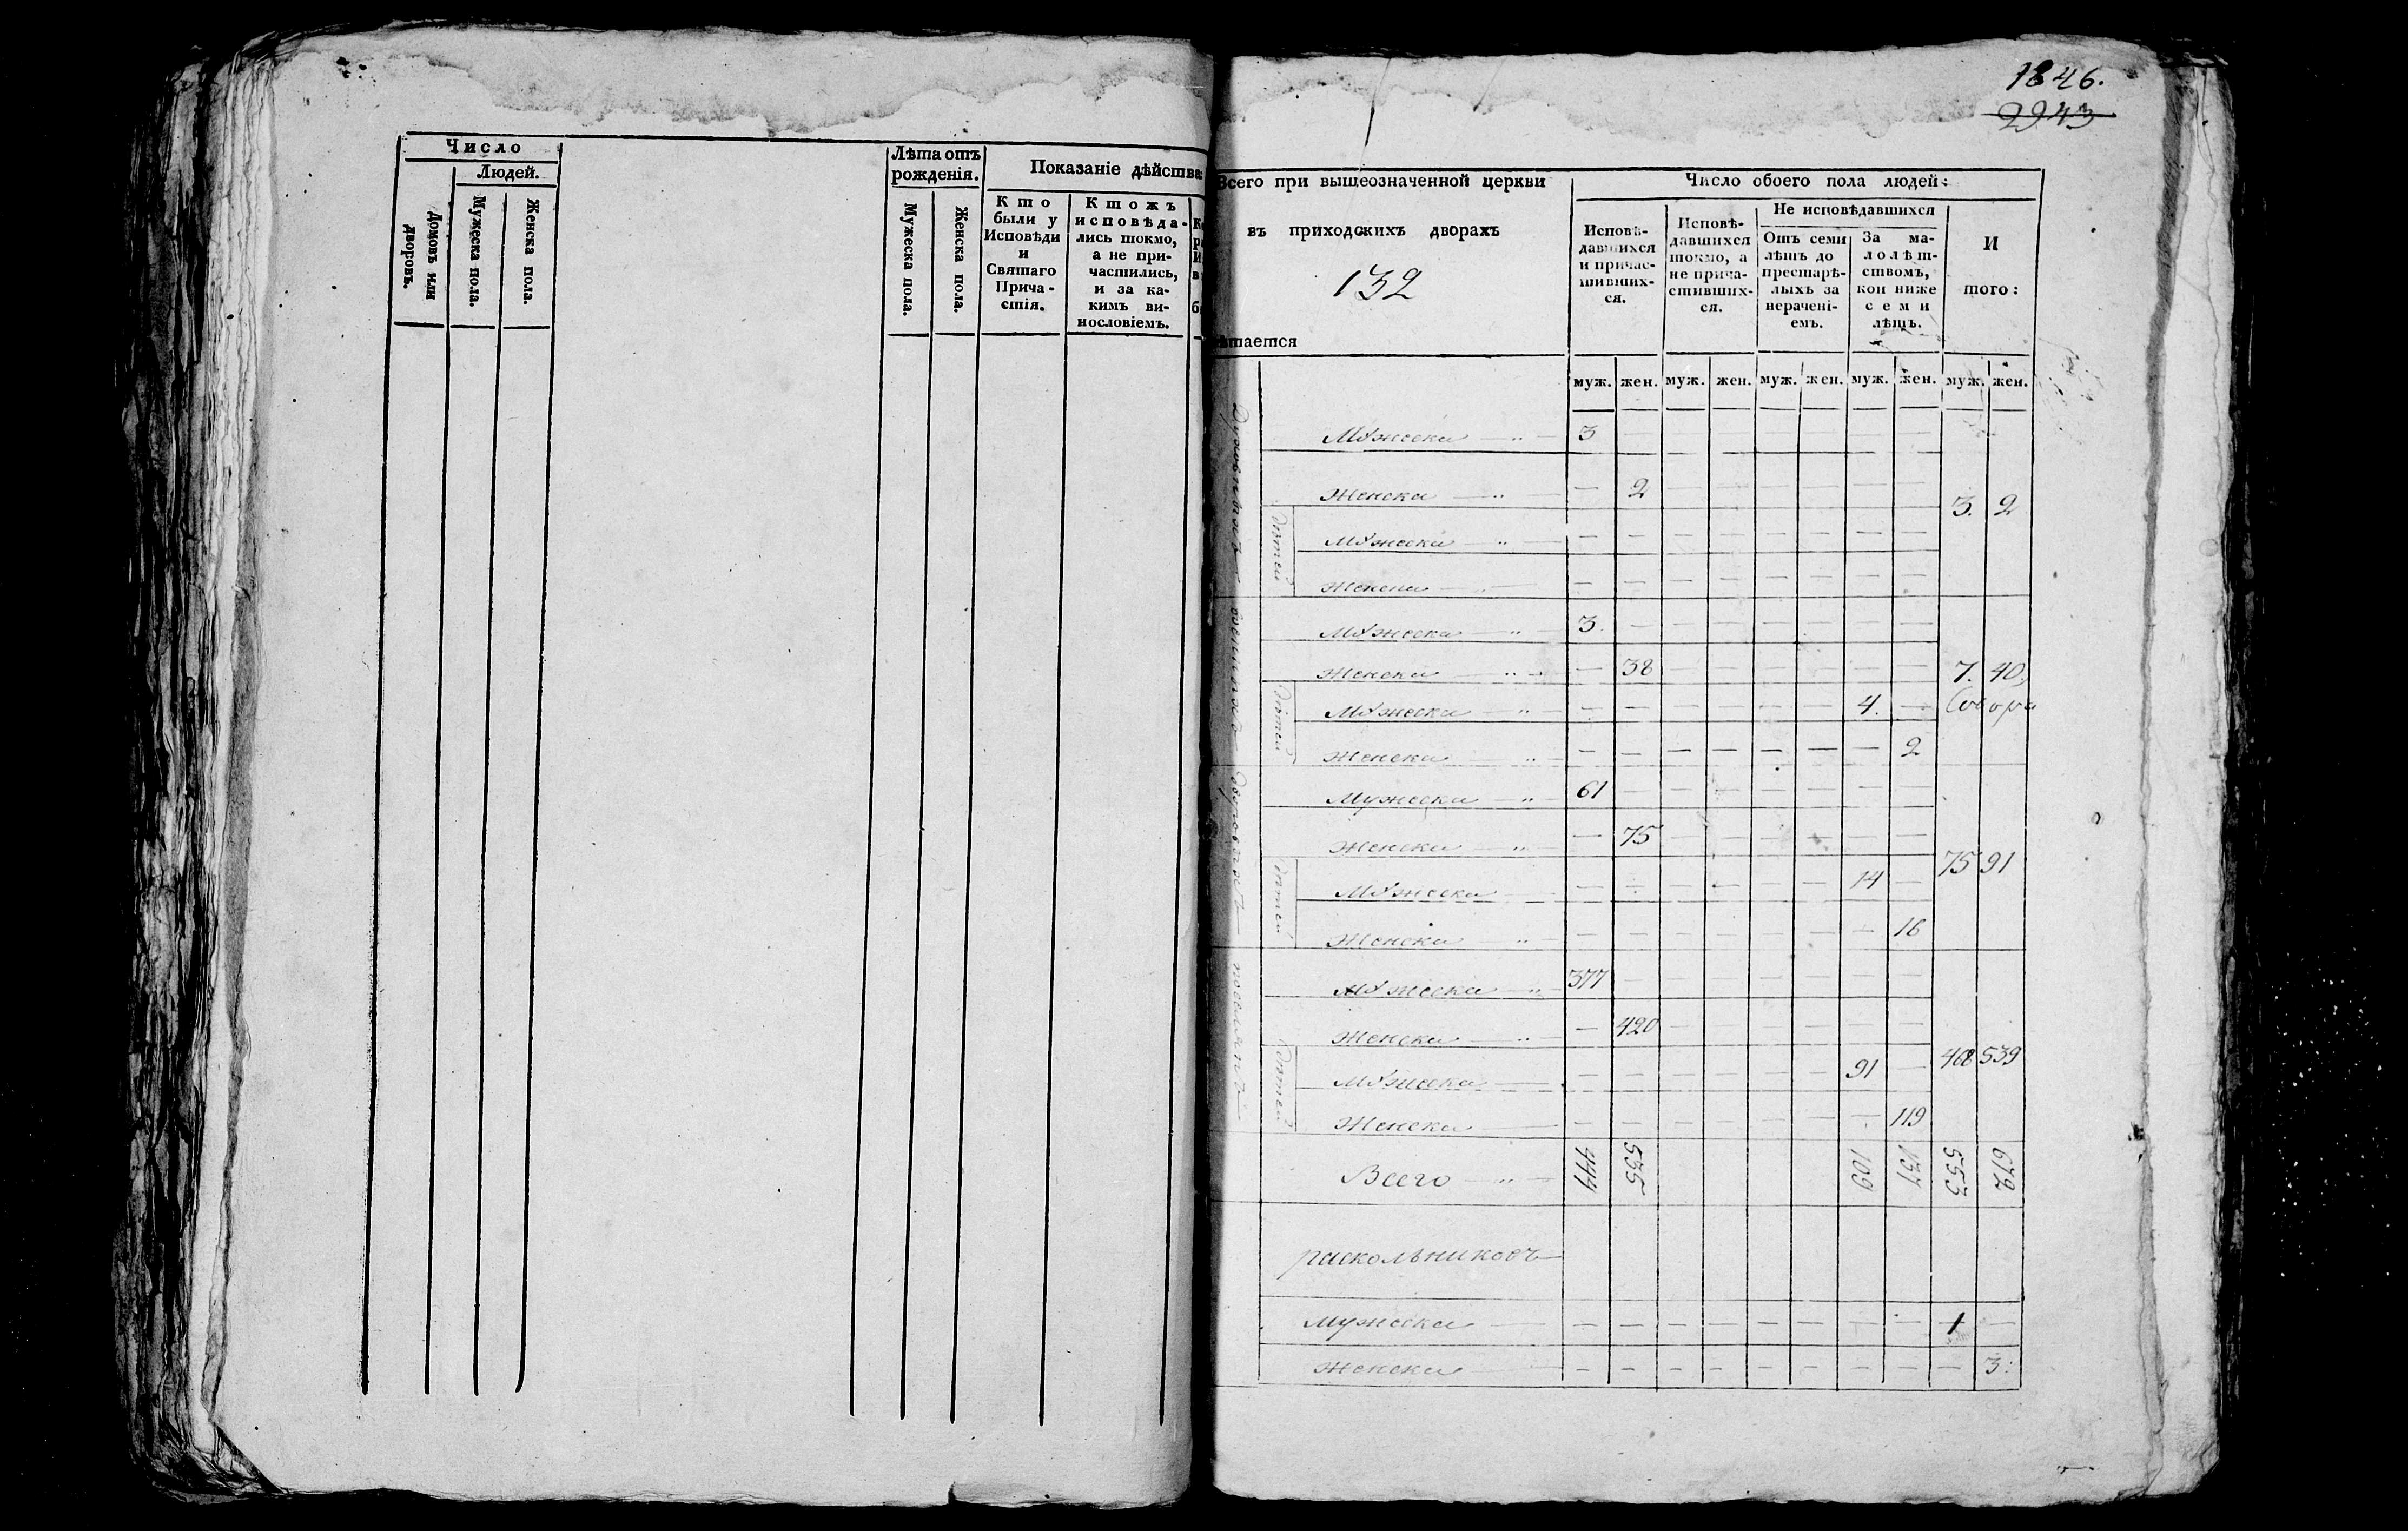 Число
Людей.
Домовъ или дворовъ.
Мужеска пола.
Женска пола.
Лѣта отъ рожденія.
Мужеска пола.
Женска пола.
Показаніе дѣйства
Кто были у Исповѣди и Святаго Причастія.
Ктожъ исповѣдались токмо, а не причастились, и за какимъ винословіемъ.
1846.
2943
Всего при вышеозначенной церкви
въ приходскихъ дворахъ
132
Число обоего пола людей:
Исповѣдавшихся и причастившихся.
Исповѣдавшихся токмо, а не причастившихся.
Не исповѣдавшихся
Отъ семи лѣтъ до престарѣлыхъ за нераченіемъ.
За малолѣтствомъ, кои ниже семи лѣтъ.
И того:
муж. жен. муж. жен. муж. жен. муж. жен. муж. жен.
Духовныхъ
Мужеска — „ — 3 — — — — — — —
Женска — „ — — 2 — — — — — — 3. 2
дѣтей
Мужеска — „ — — — — — — — — —
Женска — — — — — — — — —
военныхъ
Мужеска — „ 3. — — — — — — —
Женска — „ — — 38 — — — — — — 7. 40.
дѣтей
Мужеска — „ — — — — — — 4. —
Женска — „ — — — — — — — 2
дворовыхъ
Мужеска — „ — 61 — — — — — — —
Женска — „ — — 75 — — — — — —
дѣтей
75 91
Мужеска — — — — — — — 14 —
Женска — „ — — — — — — — — 16
поселянъ
Мужеска — „ 377 — — — — — — —
Женска — „ — — 420 — — — — — —
дѣтей
468 539
Мужеска — — — — — — — 91 —
Женска — — — — — — — — 119
Всего — „ — 444 535 109 137 553 672
раскольниковъ —
Мужеска — — — — — — — — — 1 —
Женска — — — — — — — — — — 3: